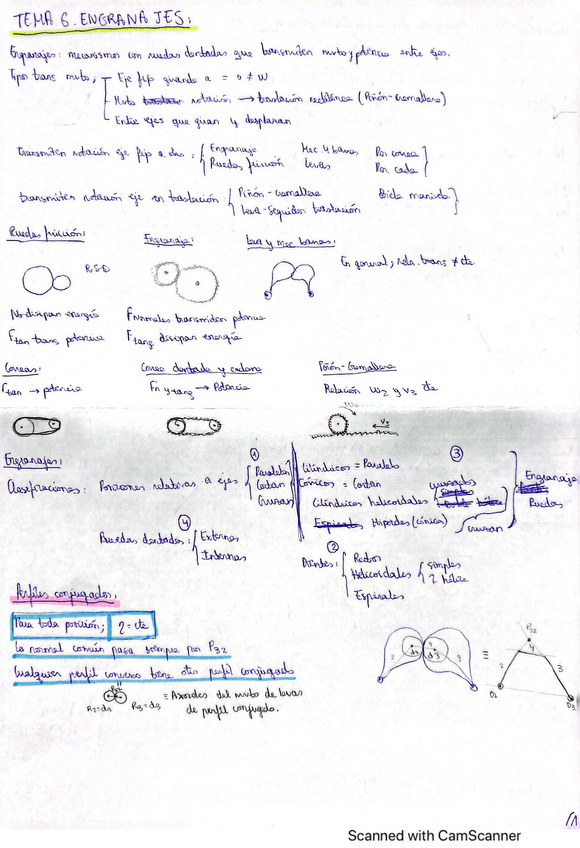 TEMA 6. ENGRANAJES:
Engranajes: mecanismos con ruedas dentadas que transmiten mvto y potencia entre ejes.
Tipos trans mvto;
Eje fijo girando a = o ≠ w
Mvto rotación → traslación rectilínea (Piñón-Cremallera)
Entre ejes que giran y desplazan
Transmiten rotación eje fijo a otro: Engranaje Mec 4 barras Por correa
Ruedas fricción Levas Por cada
transmiten rotación eje en traslación Piñón-Cremallera Biela manivela
Leva-Seguidor traslación
Ruedas fricción: Engranaje: Leva y Mec barras:
En general, rela. trans ≠ cte
R.S.D
No disipan energía FNormales transmiten potencia
Ftan trans potencia Ftang disipan energía
Correas: Correa dentada y cadena Piñón-Cremallera
Ftan → potencia Fn y tang → Potencia Relación w2 y v3 cte
w2 v3
Engranajes:
Clasificaciones: Posiciones relativas a ejes
① Paralelos
Cortan
Cruzan
③
Cilíndricos = Paralels
Cónicos = Cortan
Cilíndricos helicoidales cruzados
Hipoides (cónica) Cruzan
Engranaje
Ruedas
④
Ruedas dentadas: Externas
Internas
②
Dientes: Rectos
Helicoidales simples
2 hélice
Espirales
Perfiles conjugados:
Para toda posición; η = cte
La normal común pasa siempre por P32
Cualquier perfil convexo tiene otro perfil conjugado
R2=d2 R3=d3
= Axoides del mvto de levas
de perfil conjugado.
2 d2 4 d3 3 ≡ P32 4 2 3 O2 O3
1
Scanned with CamScanner